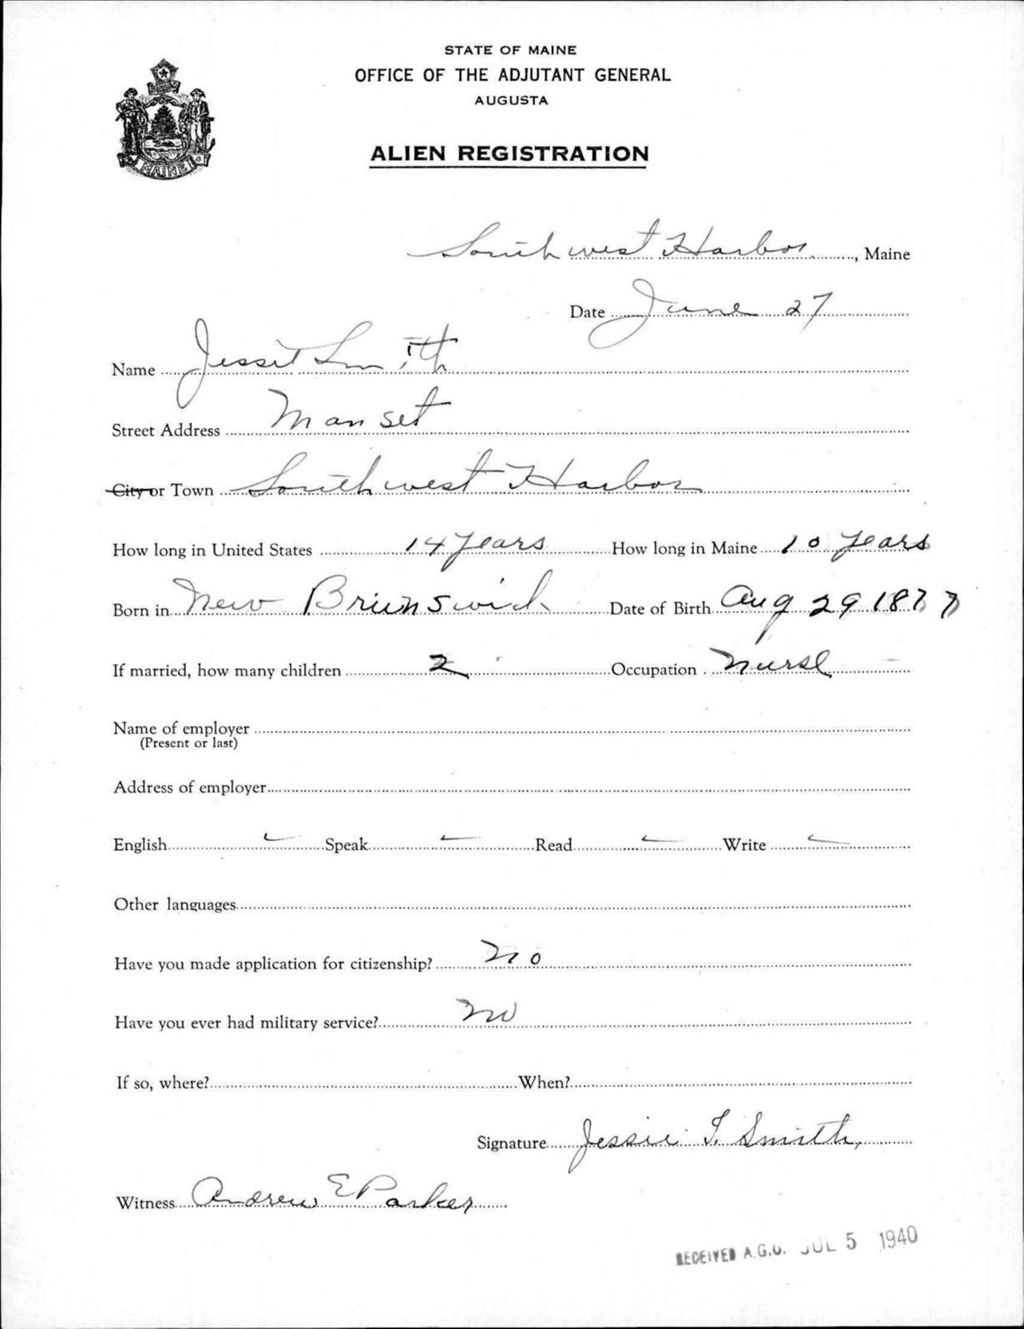 STATE OF MAINE
OFFICE OF THE ADJUTANT GENERAL
AUGUSTA
MAINE
ALIEN REGISTRATION
South west Harbor, Maine
Date June 27
Name Jessie Smith
Street Address Manset
City or Town Southwest Harbor
How long in United States 14 years How long in Maine 10 years
Born in New Brunswick Date of Birth Aug 29 1877
If married, how many children 2 Occupation Nurse
Name of employer
(Present or last)
Address of employer
English ✓ Speak ✓ Read ✓ Write ✓
Other languages
Have you made application for citizenship? No
Have you ever had military service? No
If so, where? When?
Signature Jessie T. Smith
Witness Andrew E Parker
RECEIVED A.G.O. JUL 5 1940